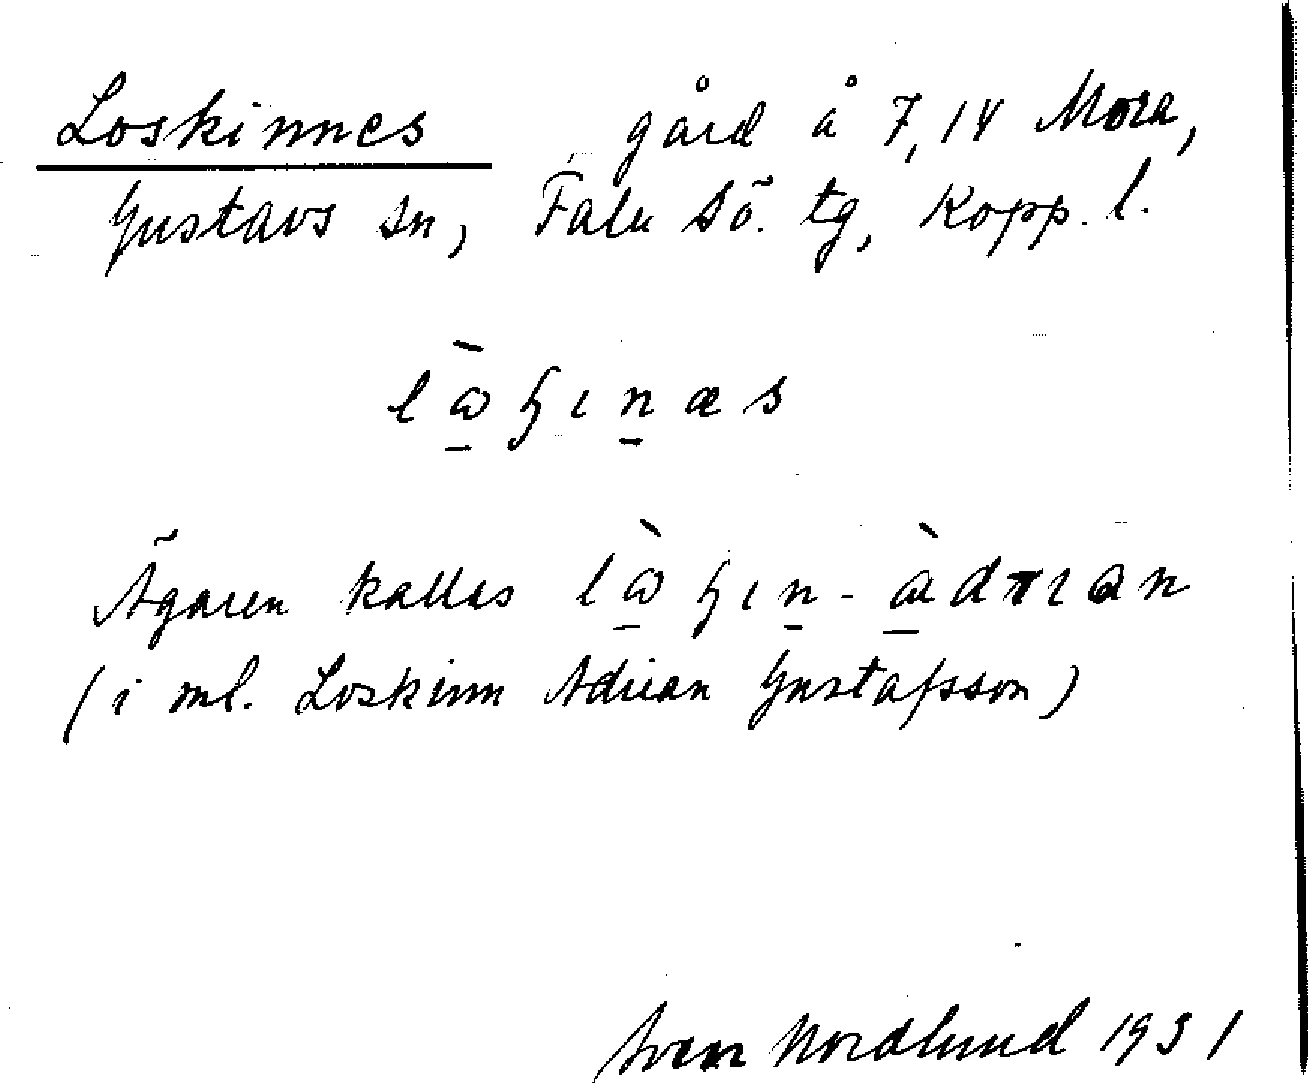 Loskinnes gård å 7,14 Mora,
Gustavs sn, Falu Sö. tg, Kopp. l.
Ägaren kallas
(i ml. Loskinn Adrian Gustafsson)
Sven Nordlund 1931